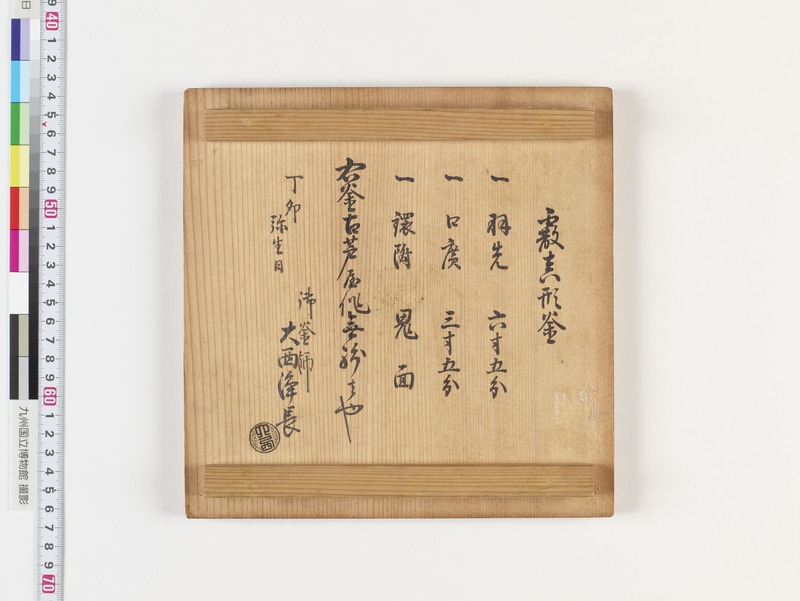 霰真形釜
一 羽先 六寸五分
一 口廣 三寸五分
一 鐶附 鬼面
右釜古芦屋作無紛者也
丁卯
弥生日
御釜師
大西浄長
九州国立博物館 撮影
40
1
2
3
4
5
6
7
8
9
50
1
2
3
4
5
6
7
8
9
60
1
2
3
4
5
6
7
8
9
70